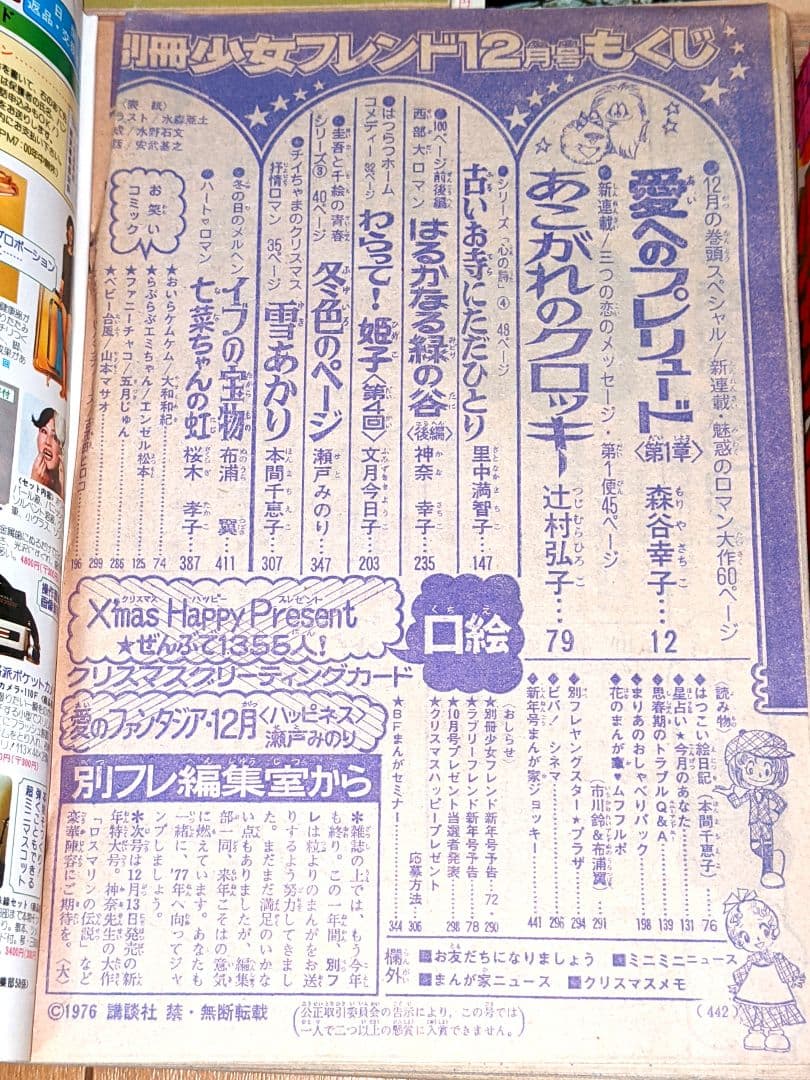 別冊少女フレンド12月号もくじ
●12月の巻頭スペシャル/新連載 魅惑のロマン大作60ページ
愛へのプレリュード〈第1章〉 森谷幸子…12
新連載/三つの恋のメッセージ・第1便45ページ
あこがれのクロッキー 辻村弘子…79
●シリーズ「心の詩」④ 48ページ
古いお寺にただひとり 里中満智子…147
●100ページ前後編 西部大ロマン
はるかなる緑の谷〈後編〉 神奈幸子…235
●はつらつホームコメディー 32ページ
わらって!姫子〈第4回〉 文月今日子…203
●圭吾と千絵の青春シリーズ③ 40ページ
冬色のページ 瀬戸みのり…347
●チイちゃまのクリスマス抒情ロマン 35ページ
雪あかり 本間千恵子…307
●冬の日のメルヘン
イブの宝物 布浦翼…411
●ハートロマン
七菜ちゃんの虹 桜木孝子…387
お笑いコミック
★おいらケムケム/大和和紀 74
★らぶらぶエミちゃん/エンゼル松本 125
★ファニーチャコ/五月じゅん 286
★ベビー台風/山本マサオ 299
196
〈表紙〉
水森亜土
水野石文
安武基之
X'mas Happy Present
クリスマス ハッピー プレゼント
★ぜんぶで1355人!
口絵
クリスマスグリーティングカード
愛のファンタジア・12月〈ハッピネス〉
瀬戸みのり
〈読み物〉
★はつこい絵日記(本間千恵子)…76
★星占い★今月のあなた…131
★思春期のトラブルQ&A…139
★まりあのおしゃべりパック…198
★花のまんが家♥ムフフルポ
(市川鈴&布浦翼)…291
★別フレヤングスター★プラザ…294
★ビバ!シネマ…296
★新年号まんが家ジョッキー…441
〈おしらせ〉
★別冊少女フレンド新年号予告…72・290
★ラブリーフレンド新年号予告…78
★10月号プレゼント当選者発表…298
★クリスマスハッピープレゼント
応募方法…306
★BFまんがセミナー…344
別フレ編集室から
*雑誌の上では、もう今年
も終り。この一年間、別フ
レは粒よりのまんがをお送
りするよう努力してきまし
た。まだまだ満足のいかな
い点もありましたが、編集
部一同、来年こそはの意気
に燃えています。あなたも
一緒に、'77年へ向ってジャ
ンプしましょう。
*次号は12月13日発売の新
年特大号。神奈先生の大作
「ロスマリンの伝説」など
豪華陣容にご期待を。(大)
欄外
■お友だちになりましょう ■ミニミニニュース
■まんが家ニュース ■クリスマスメモ
©1976 講談社 禁・無断転載
(公正取引委員会の告示により、この号では
一人で二つ以上の懸賞に入賞できません。)
(442)